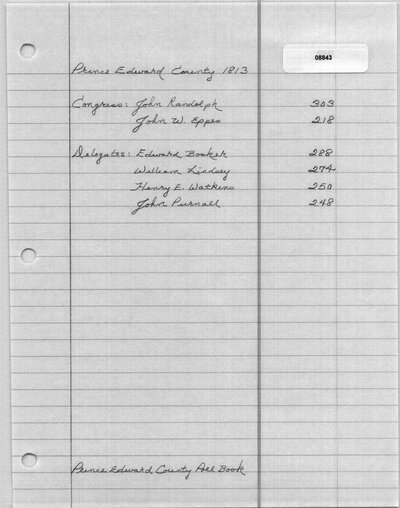 08843
Prince Edward County 1813
Congress: John Randolph 303
John W. Eppes 218
Delegates: Edward Booker 288
William Lindsey 274
Henry E. Watkins 250
John Purnall 248
Prince Edward County Poll Book